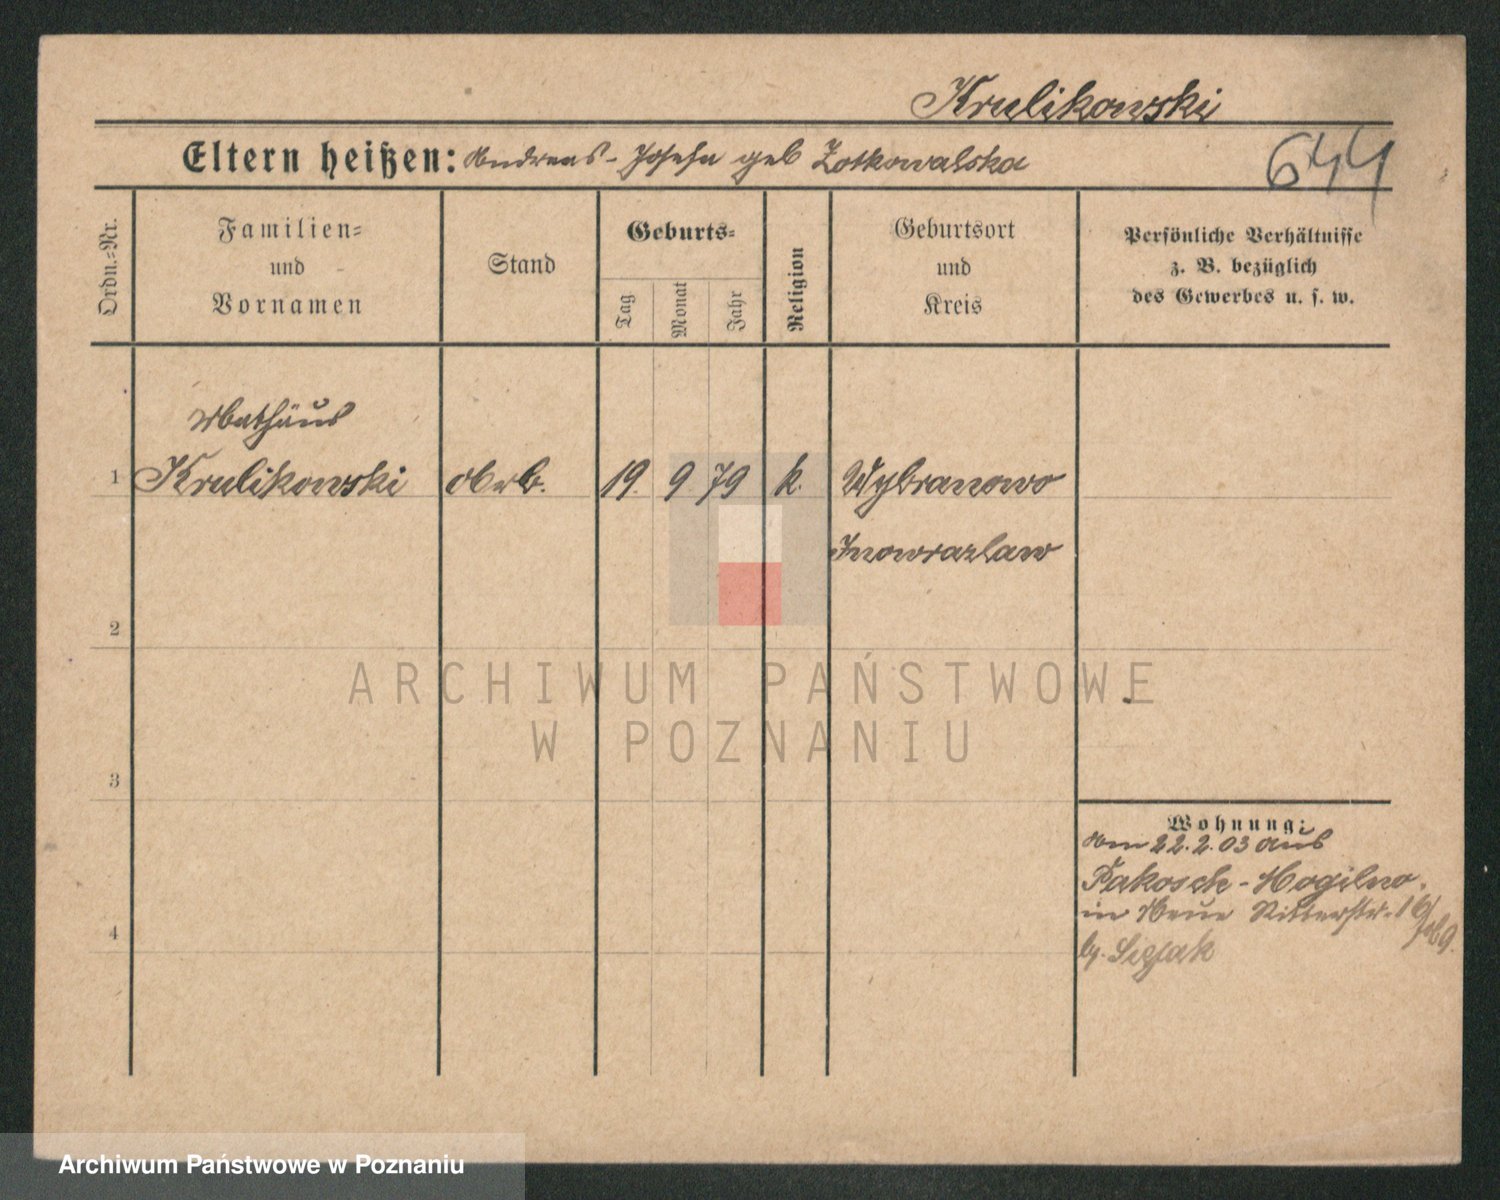 Krulikowski
Eltern heißen: Andreas - Josefa geb Zotkowalska
644
Ordn.-Nr.
Familien- und Vornamen
Stand
Geburts-
Tag
Monat
Jahr
Religion
Geburtsort und Kreis
Persönliche Verhältnisse
z. B. bezüglich
des Gewerbes u. s. w.
Mathäus
1 Krulikowski Arb. 19. 9 79 k. Wybranowo
Inowrazlaw
2
ARCHIWUM PAŃSTWOWE
W POZNANIU
3
Wohnung:
Vom 22.2.03 aus
Pakosch - Mogilno.
in Neue Ritterstr. 16
by.
4
Archiwum Państwowe w Poznaniu